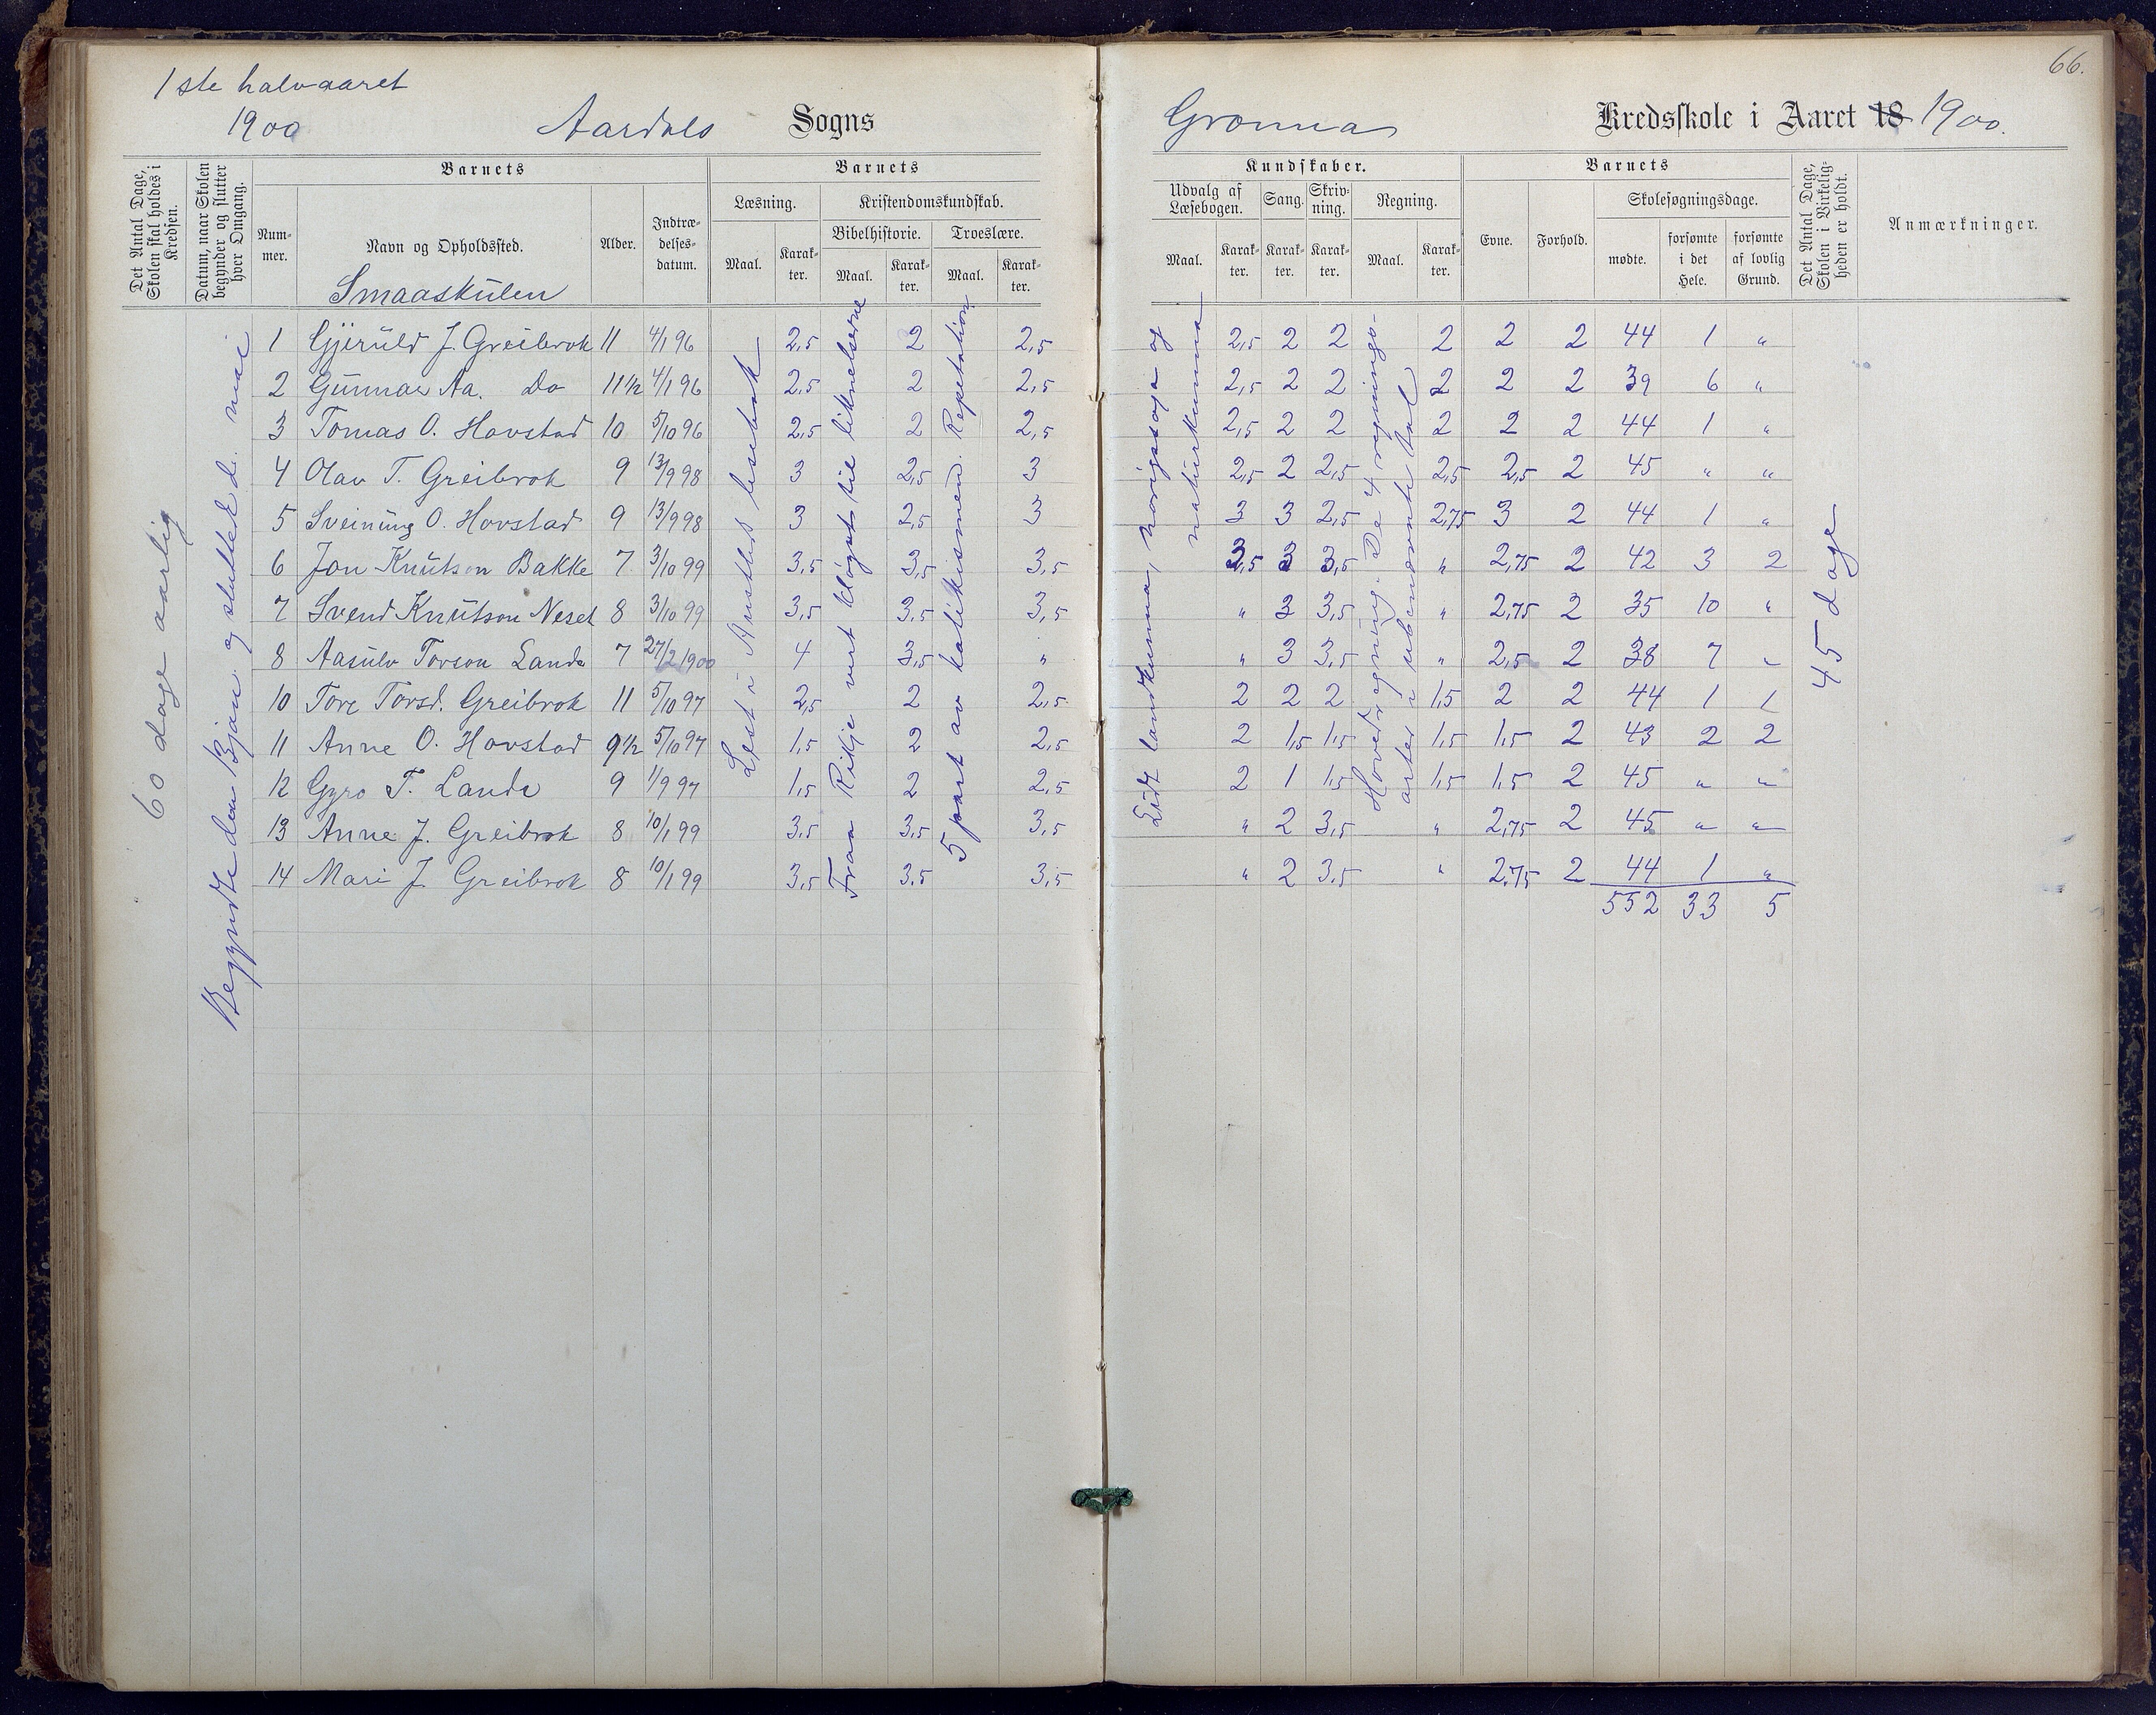 66.
1ste halvaaret
1900 Aardals Sogns Kredsskole i Aaret 18 1900.
Det Antal Dage, Skolen skal holdes i Kredsen.
Datum, naar Skolen begynder og slutter hver Omgang.
Barnets
Nummer.
Navn og Opholdssted.
Smaaskulen
Alder.
Indtrædelsesdatum.
Barnets
Læsning.
Maal.
Karakter.
Kristendomskundskab.
Bibelhistorie.
Maal.
Karakter.
Troeslære.
Maal.
Karakter.
Kundskaber.
Udvalg af Læsebogen.
Maal.
Karakter.
Sang.
Karakter.
Skrivning.
Karakter.
Regning.
Maal.
Karakter.
Barnets
Evne.
Forhold.
Skolesøgningsdage.
mødte.
forsømte i det Hele.
forsømte af lovlig Grund.
Det Antal Dage, Skolen i Virkeligheden er holdt.
Anmærkninger.
60 dage aarlig
og sluttet d. mai
Lest i lesebok
til liknelserne
5 part av katekismen. Repetation
landkunna, norigssoga og
naturkunna
Hovedregning. De 4 regnings-
arter i ubenævnte tal
45 dage
1 Gjeruld J. Greibrok 11 4/1 96 2,5 2 2,5 2,5 2 2 2 2 2 44 1 "
2 Gunnar Aa. Do 11 1/2 4/1 96 2,5 2 2,5 2,5 2 2 2 2 2 39 6 "
3 Tomas O. Hovstad 10 5/10 96 2,5 2 2,5 2,5 2 2 2 2 2 44 1 "
4 Olav T. Greibrok 9 13/9 98 3 2,5 3 2,5 2 2,5 2,5 2,5 2 45 " "
5 Sveinung O. Hovstad 9 13/9 98 3 2,5 3 3 3 2,5 2,75 3 2 44 1 "
6 Jon Knutson Bakke 7 3/10 99 3,5 3,5 3,5 3,5 3 3,5 " 2,75 2 42 3 2
7 Svend Knutson Neset 8 3/10 99 3,5 3,5 3,5 " 3 3,5 " 2,75 2 35 10 "
8 Aasulv Torson Landa 7 27/2 1900 4 3,5 " " 3 3,5 " 2,5 2 38 7 "
10 Tore Torsd. Greibrok 11 5/10 97 2,5 2 2,5 2 2 2 1,5 2 2 44 1 1
11 Anne O. Hovstad 9 1/2 5/10 97 1,5 2 2,5 2 1,5 1,5 1,5 1,5 2 43 2 2
12 Gyro T. Landa 9 1/9 97 1,5 2 2,5 2 1 1,5 1,5 1,5 2 45 " "
13 Anne J. Greibrok 8 10/1 99 3,5 3,5 3,5 " 2 3,5 " 2,75 2 45 " "
14 Mari J. Greibrok 8 10/1 99 3,5 3,5 3,5 " 2 3,5 " 2,75 2 44 1 "
552 33 5